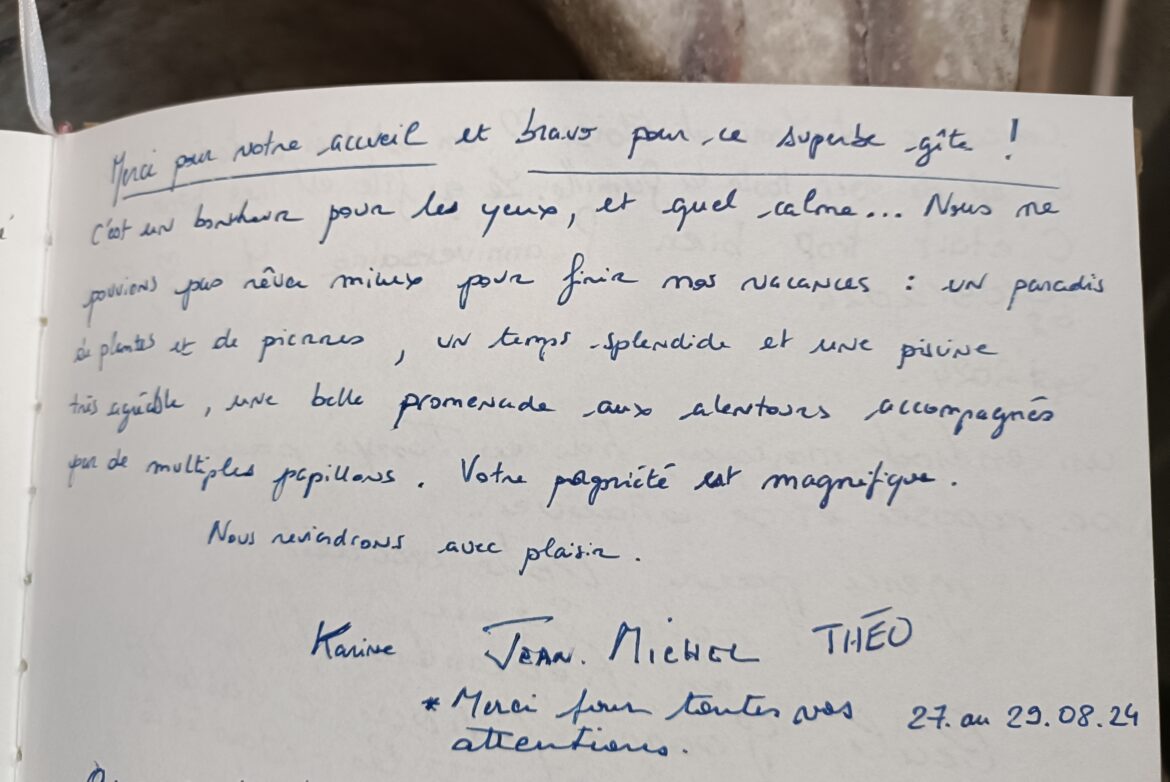 Merci pour votre accueil et bravo pour ce superbe gîte !
C'est un bonheur pour les yeux, et quel calme... Nous ne
pouvions pas rêver mieux pour finir nos vacances : un paradis
de plantes et de pierres, un temps splendide et une piscine
très agréable, une belle promenade aux alentours accompagnés
par de multiples papillons. Votre propriété est magnifique.
Nous reviendrons avec plaisir.
Karine JEAN. MICHEL THÉO
* Merci pour toutes vos
attentions.
27. au 29.08.24